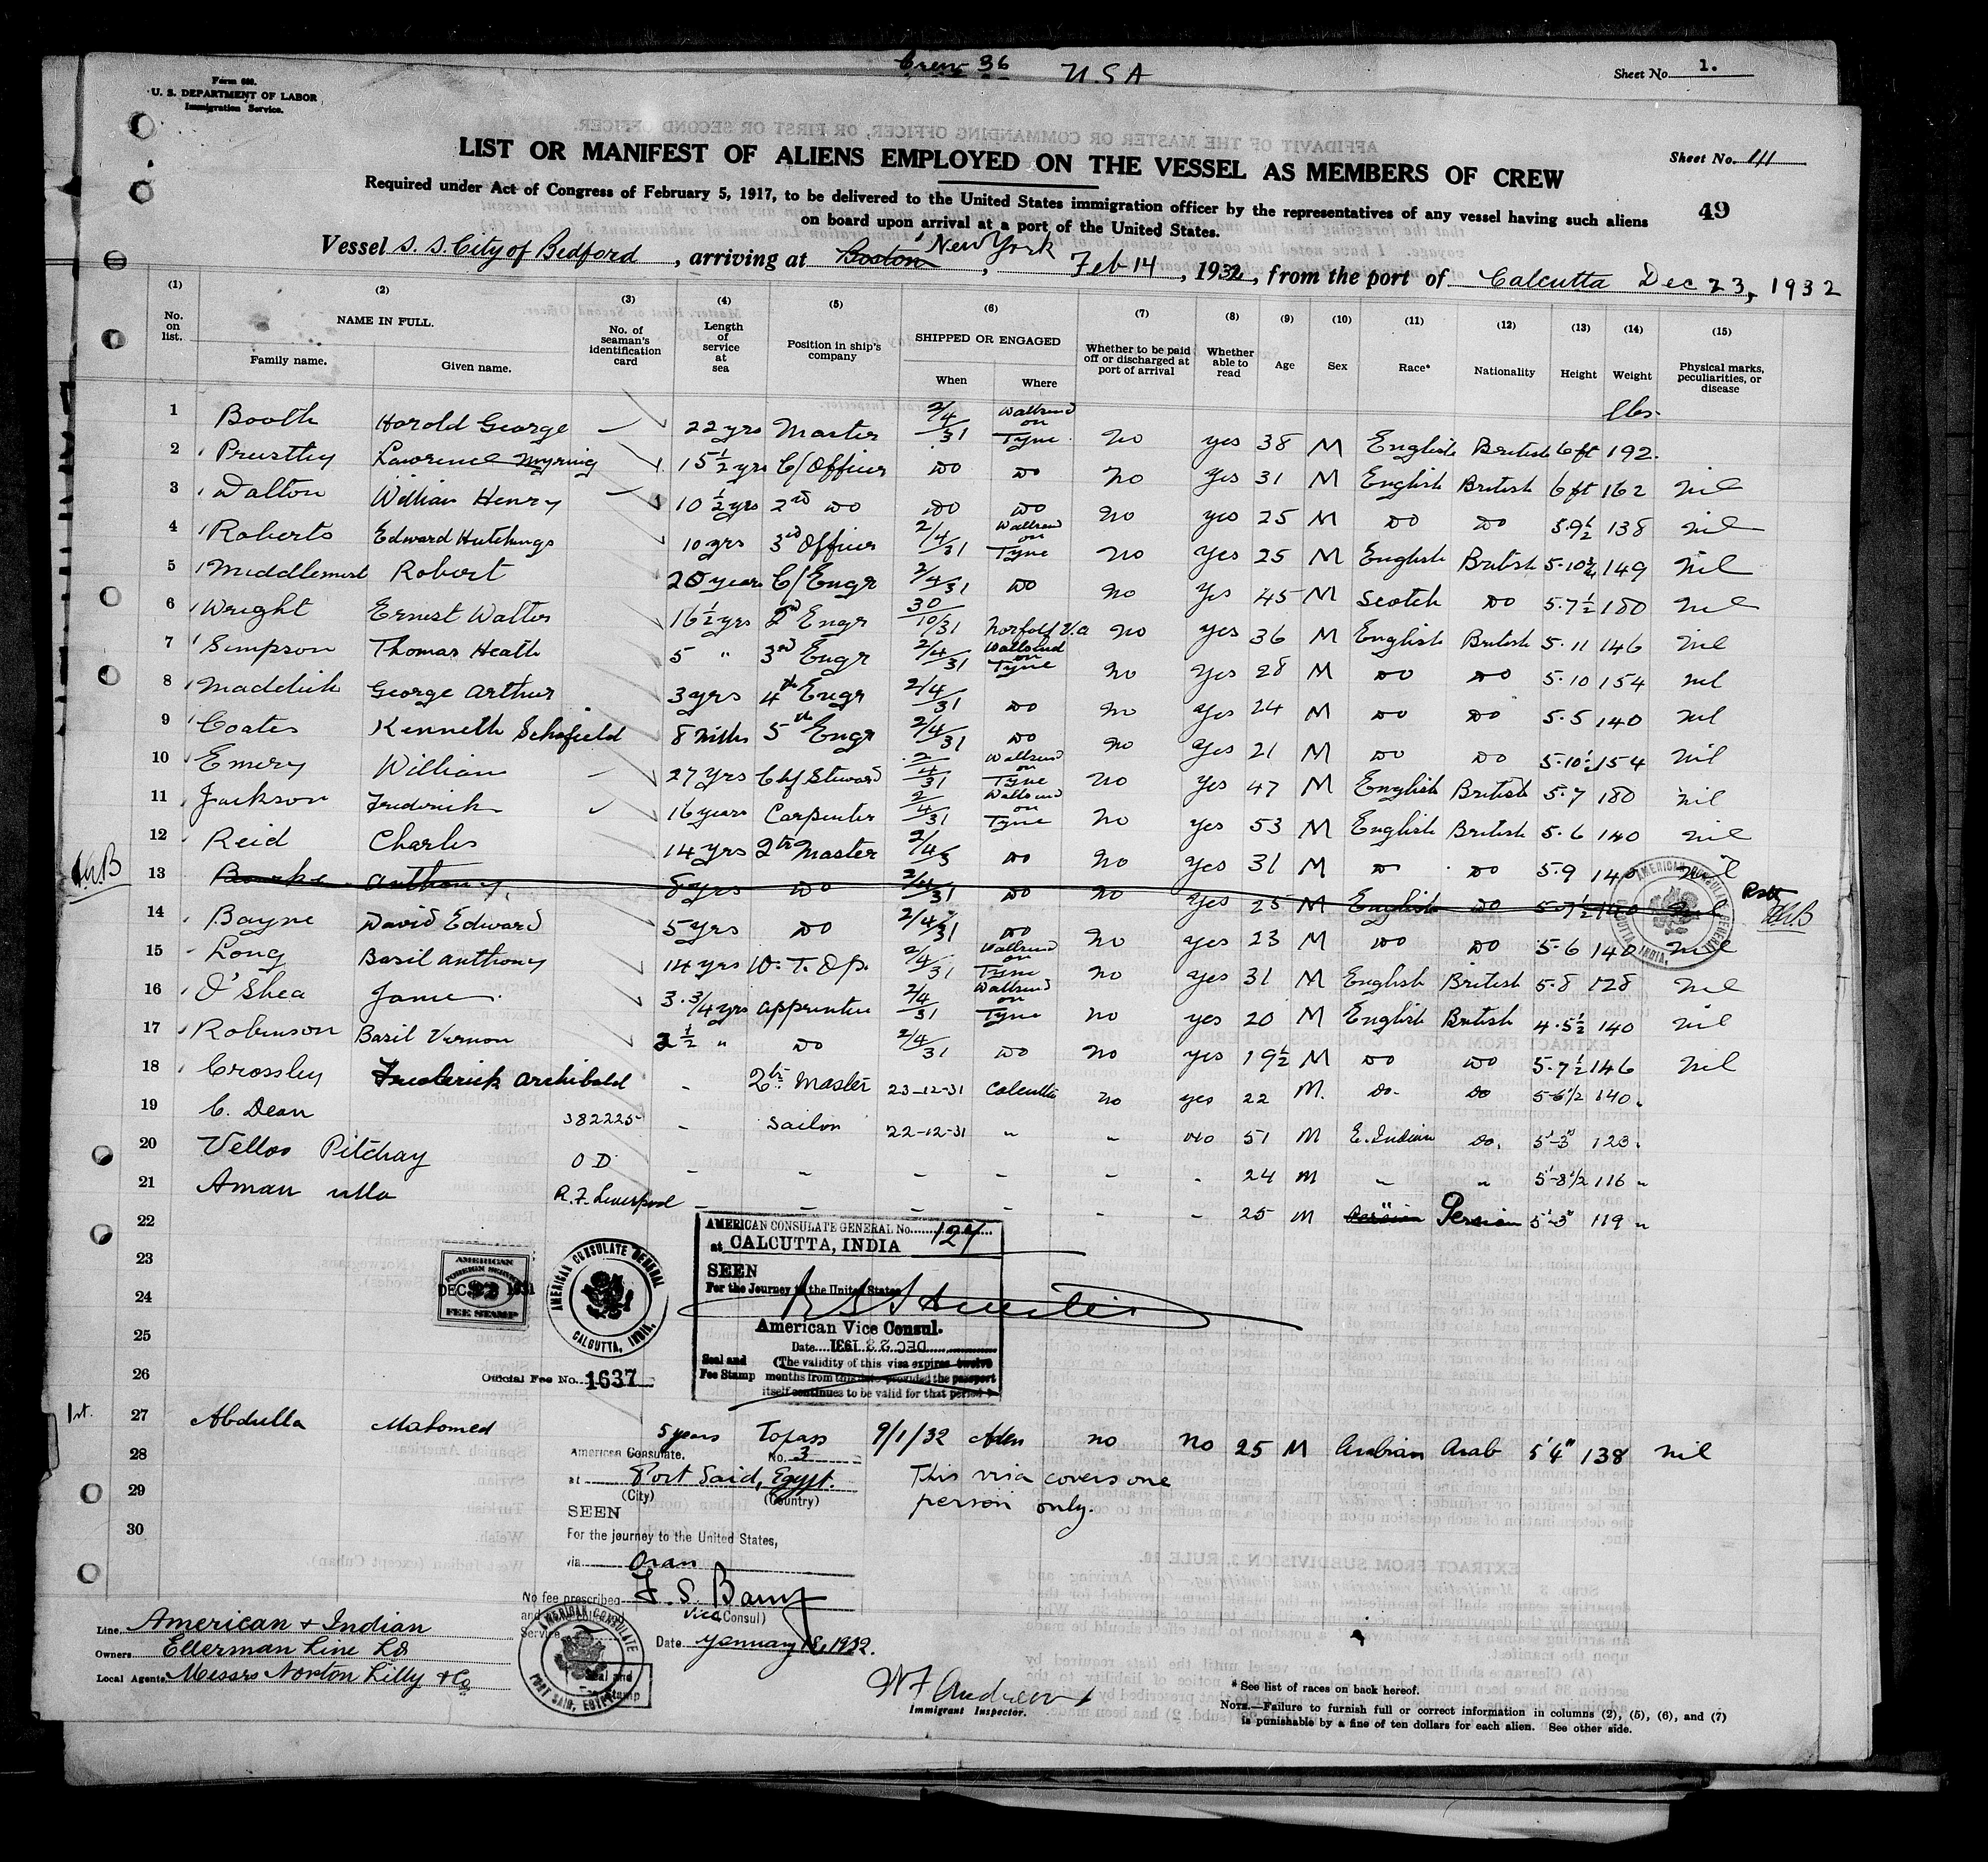 Crew 36 U.S.A
Sheet No. 1.
Form 680.
U. S. DEPARTMENT OF LABOR
Immigration Service.
LIST OR MANIFEST OF ALIENS EMPLOYED ON THE VESSEL AS MEMBERS OF CREW
Sheet No.
Required under Act of Congress of February 5, 1917, to be delivered to the United States immigration officer by the representatives of any vessel having such aliens
on board upon arrival at a port of the United States.
49
Vessel S. S. City of Bedford, arriving at Boston New York, Feb 14, 1932, from the port of Calcutta Dec 23, 1932
(1) (2) (3) (4) (5) (6) (7) (8) (9) (10) (11) (12) (13) (14) (15)
No. on list. NAME IN FULL. Family name. Given name. No. of seaman's identification card Length of service at sea Position in ship's company SHIPPED OR ENGAGED When Where Whether to be paid off or discharged at port of arrival Whether able to read Age Sex Race* Nationality Height Weight Physical marks, peculiarities, or disease
lbs.
1 Booth Harold George 22 yrs Master 2/4/31 Wallsend on Tyne no yes 38 M English British 6 ft 192.
2 Lawrence 15 1/2 yrs C/Officer Do Do No Yes 31 M English British 6 ft 162 nil
3 Walton William Henry 10 1/2 yrs 2nd Do Do Do No yes 25 M Do Do 5.9 1/2 138 nil
4 Roberts Edward Hutchings 10 yrs 3rd Officer 2/4/31 Wallsend on Tyne No Yes 25 M English British 149 Nil
5 Middlemist Robert 20 years C/Engr 2/4/31 Do No Yes 45 M Scotch Do 5.7 1/2 180 Nil
6 Wright Ernest Walter 16 1/2 yrs 2nd Engr 30/10/31 Norfolk Va no yes 36 M English British 5.11 146 Nil
7 Simpson Thomas Heath 5 " 3rd Engr 2/4/31 Wallsend on Tyne No Yes 28 M Do Do 5.10 154 nil
8 George Arthur 3 yrs 4th Engr 2/4/31 Do No Yes 24 M Do Do 5.5 140 nil
9 Coates Kenneth Schofield 8 mths 5th Engr 2/4/31 Do No Yes 21 M Do Do 5.10 1/2 154 nil
10 Emery William 27 yrs Chf Steward 2/4/31 Wallsend on Tyne No Yes 47 M English British 5.7 180 nil
11 Jackson Frederick 16 years Carpenter 2/4/31 Wallsend on Tyne No yes 53 M English British 5.6 140 nil
12 Reid Charles 14 yrs Qtr Master 2/4/3 Do No Yes 31 M Do Do 5.9 140 nil
13 Bourke Anthony. 8 yrs Do 2/4/31 Do No Yes 25 M English Do 5.7 1/2 140 nil
14 Bayne David Edward 5 yrs Do 2/4/31 Do No yes 23 M Do Do 5.6 140 nil
15 Long Basil Anthony 14 yrs W. T. Op. 2/4/31 Wallsend on Tyne no yes 31 M English British 5.8 128 nil
16 O'Shea James 3.3/4 yrs Apprentice 2/4/31 Wallsend on Tyne no yes 20 M English British 4.5 1/2 140 nil
17 Robinson Basil Vernon 2 1/2 " Do 2/4/31 Do No yes 19 1/2 M Do Do 5.7 1/2 146 nil
18 Crossley Frederick Archibald - Qtr. Master 23-12-31 Calcutta no yes 22 M. Do. Do 5-6 1/2 140 "
19 C. Dean 382225 - Sailor 22-12-31 " " No 51 M E. Indian Do. 5'-3" 123 "
20 Vellos Pitchay O D - " - - - - 24 M " " 5'-8 1/2 116 "
21 Aman ulla R.F. Liverpool - - - - - - 25 M Persian Persian 5'-3" 119 "
22
23
24
25
26
AMERICAN CONSULATE GENERAL No. 127
at CALCUTTA, INDIA
SEEN
For the Journey to the United States
American Vice Consul.
Date DEC 23 1931
Seal and Fee Stamp (The validity of this visa expires twelve
months from this date provided the passport
itself continues to be valid for that period
AMERICAN FOREIGN SERVICE FEE STAMP
AMERICAN CONSULATE GENERAL CALCUTTA, INDIA.
Official Fee No. 1637
AMERICAN CONSULATE GENERAL CALCUTTA, INDIA.
1st. 27 Abdulla Mahomed 5 years Topass 9/1/32 Aden no No 25 M Arabian Arab 5'4" 138 nil
28
29
30
American Consulate. No. 3
at Port Said, Egypt.
(City) (Country)
This visa covers one
person only.
SEEN
For the journey to the United States,
via Oran
No fee prescribed
Vice Consul)
Service
Date January 18, 1932.
AMERICAN CONSULATE PORT SAID, EGYPT
Seal and
Stamp
Line American & Indian
Owners Ellerman Line Ld
Local Agents Messrs Norton Lilly & Co
W F Andrews
Immigrant Inspector.
* See list of races on back hereof.
NOTE.—Failure to furnish full or correct information in columns (2), (5), (6), and (7)
is punishable by a fine of ten dollars for each alien. See other side.